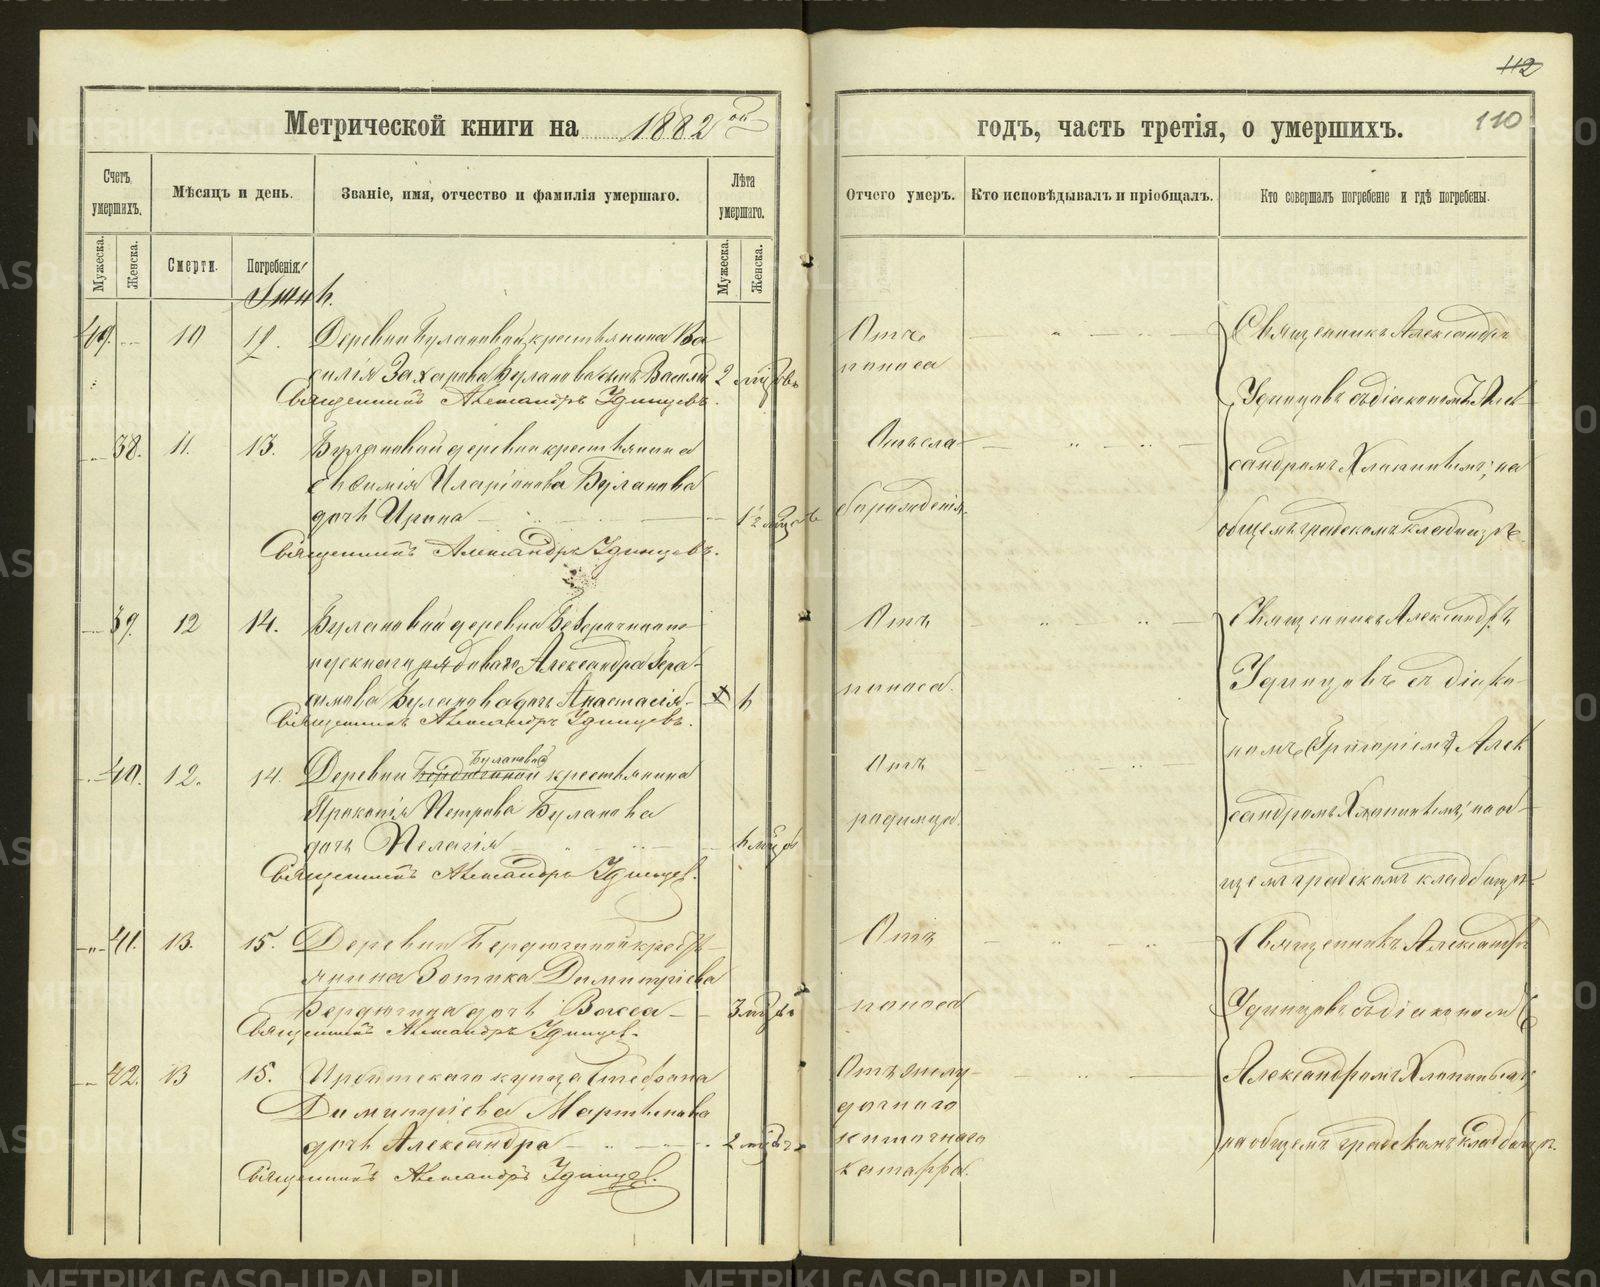 112
Метрической книги на 1882 ой
годъ, часть третія, о умершихъ.
110
Счетъ умершихъ.
Мѣсяцъ и день.
Званіе, имя, отчество и фамилія умершаго.
Лѣта умершаго.
Отчего умер.
Кто исповѣдывалъ и пріобщалъ.
Кто совершалъ погребеніе и гдѣ погребены.
Мужеска.
Женска.
Смерти.
Погребенія.
Мужеска.
Женска.
49. 10 12. Деревни Булановой крестьянина Ва-
силія Захарова Буланова сынъ Василій 2 мѣсяцовъ
Священникъ Александръ Удинцевъ.
Отъ
поноса
38. 11. 13. Булановой деревни крестьянина
Евфимія Иларіонова Буланова
дочь Ирина 1½ мѣсяцъ
Священникъ Александръ Удинцевъ.
Отъ сла-
борожденія.
Священникъ Александръ
Удинцевъ съ діакономъ Алек-
сандромъ Хлопинымъ; на
общемъ градскомъ кладбищѣ.
39. 12 14. Булановой деревни безсрочноот-
пускнаго рядоваго Александра Гера-
симова Буланова дочь Анастасія 6
Священникъ Александръ Удинцевъ.
Отъ
поноса.
40. 12. 14. Деревни Бердюгиной Булановой крестьянина
Прокопія Петрова Буланова
дочь Пелагія 6 мѣсяцовъ
Священникъ Александръ Удинцевъ.
Отъ
родимца.
Священникъ Александръ
Удинцевъ съ діако-
номъ Григоріемъ Алек-
сандромъ Хлопинымъ; на об-
щемъ градскомъ кладбищѣ.
41. 13. 15. Деревни Бердюгиной кресть-
янина Зотика Димитріева
Бердюгина дочь Васса 3 мѣсяцовъ
Священникъ Александръ Удинцевъ.
Отъ
поноса
42. 13 15. Ирбитскаго купца Стефана
Димитріева Мартьянова
дочь Александра 2 мѣсяцовъ
Священникъ Александръ Удинцевъ.
Отъ желу-
дочного
кишечнаго
катарра.
Священникъ Александръ
Удинцевъ съ діакономъ
Александромъ Хлопинымъ;
на общемъ градскомъ кладбищѣ.
METRIKI.GASO-URAL.RU